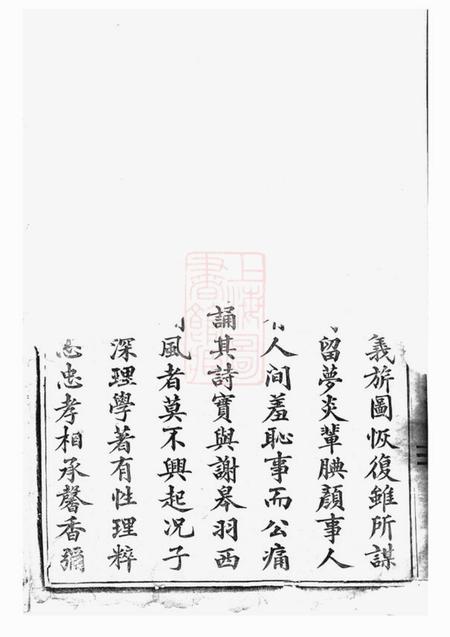 義旂圖恢復雖所謀
留夢炎輩腆顏事人
人間羞恥事而公痛
誦其詩實與謝皋羽西
風者莫不興起况子
深理學著有性理粹
忠孝相承馨香彌
上海圖書館藏